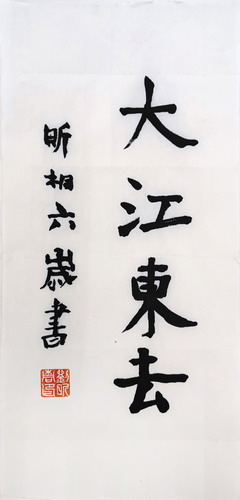 大江東去
昕桐六歲書